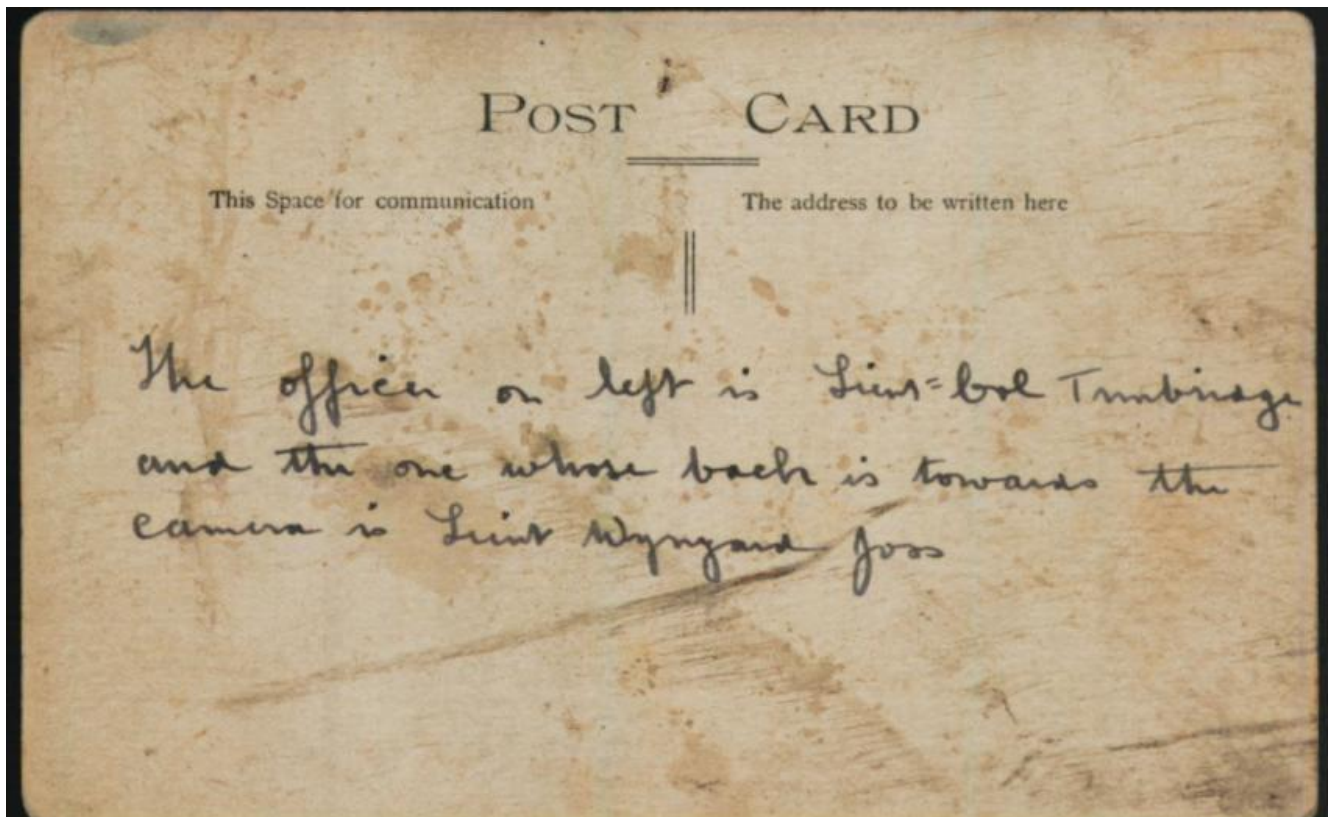 POST CARD
This Space for communication
The address to be written here
The officer on left is Lieut=Col Tunbridge
and the one whose back is towards the
camera is Lieut Wynyard Joss